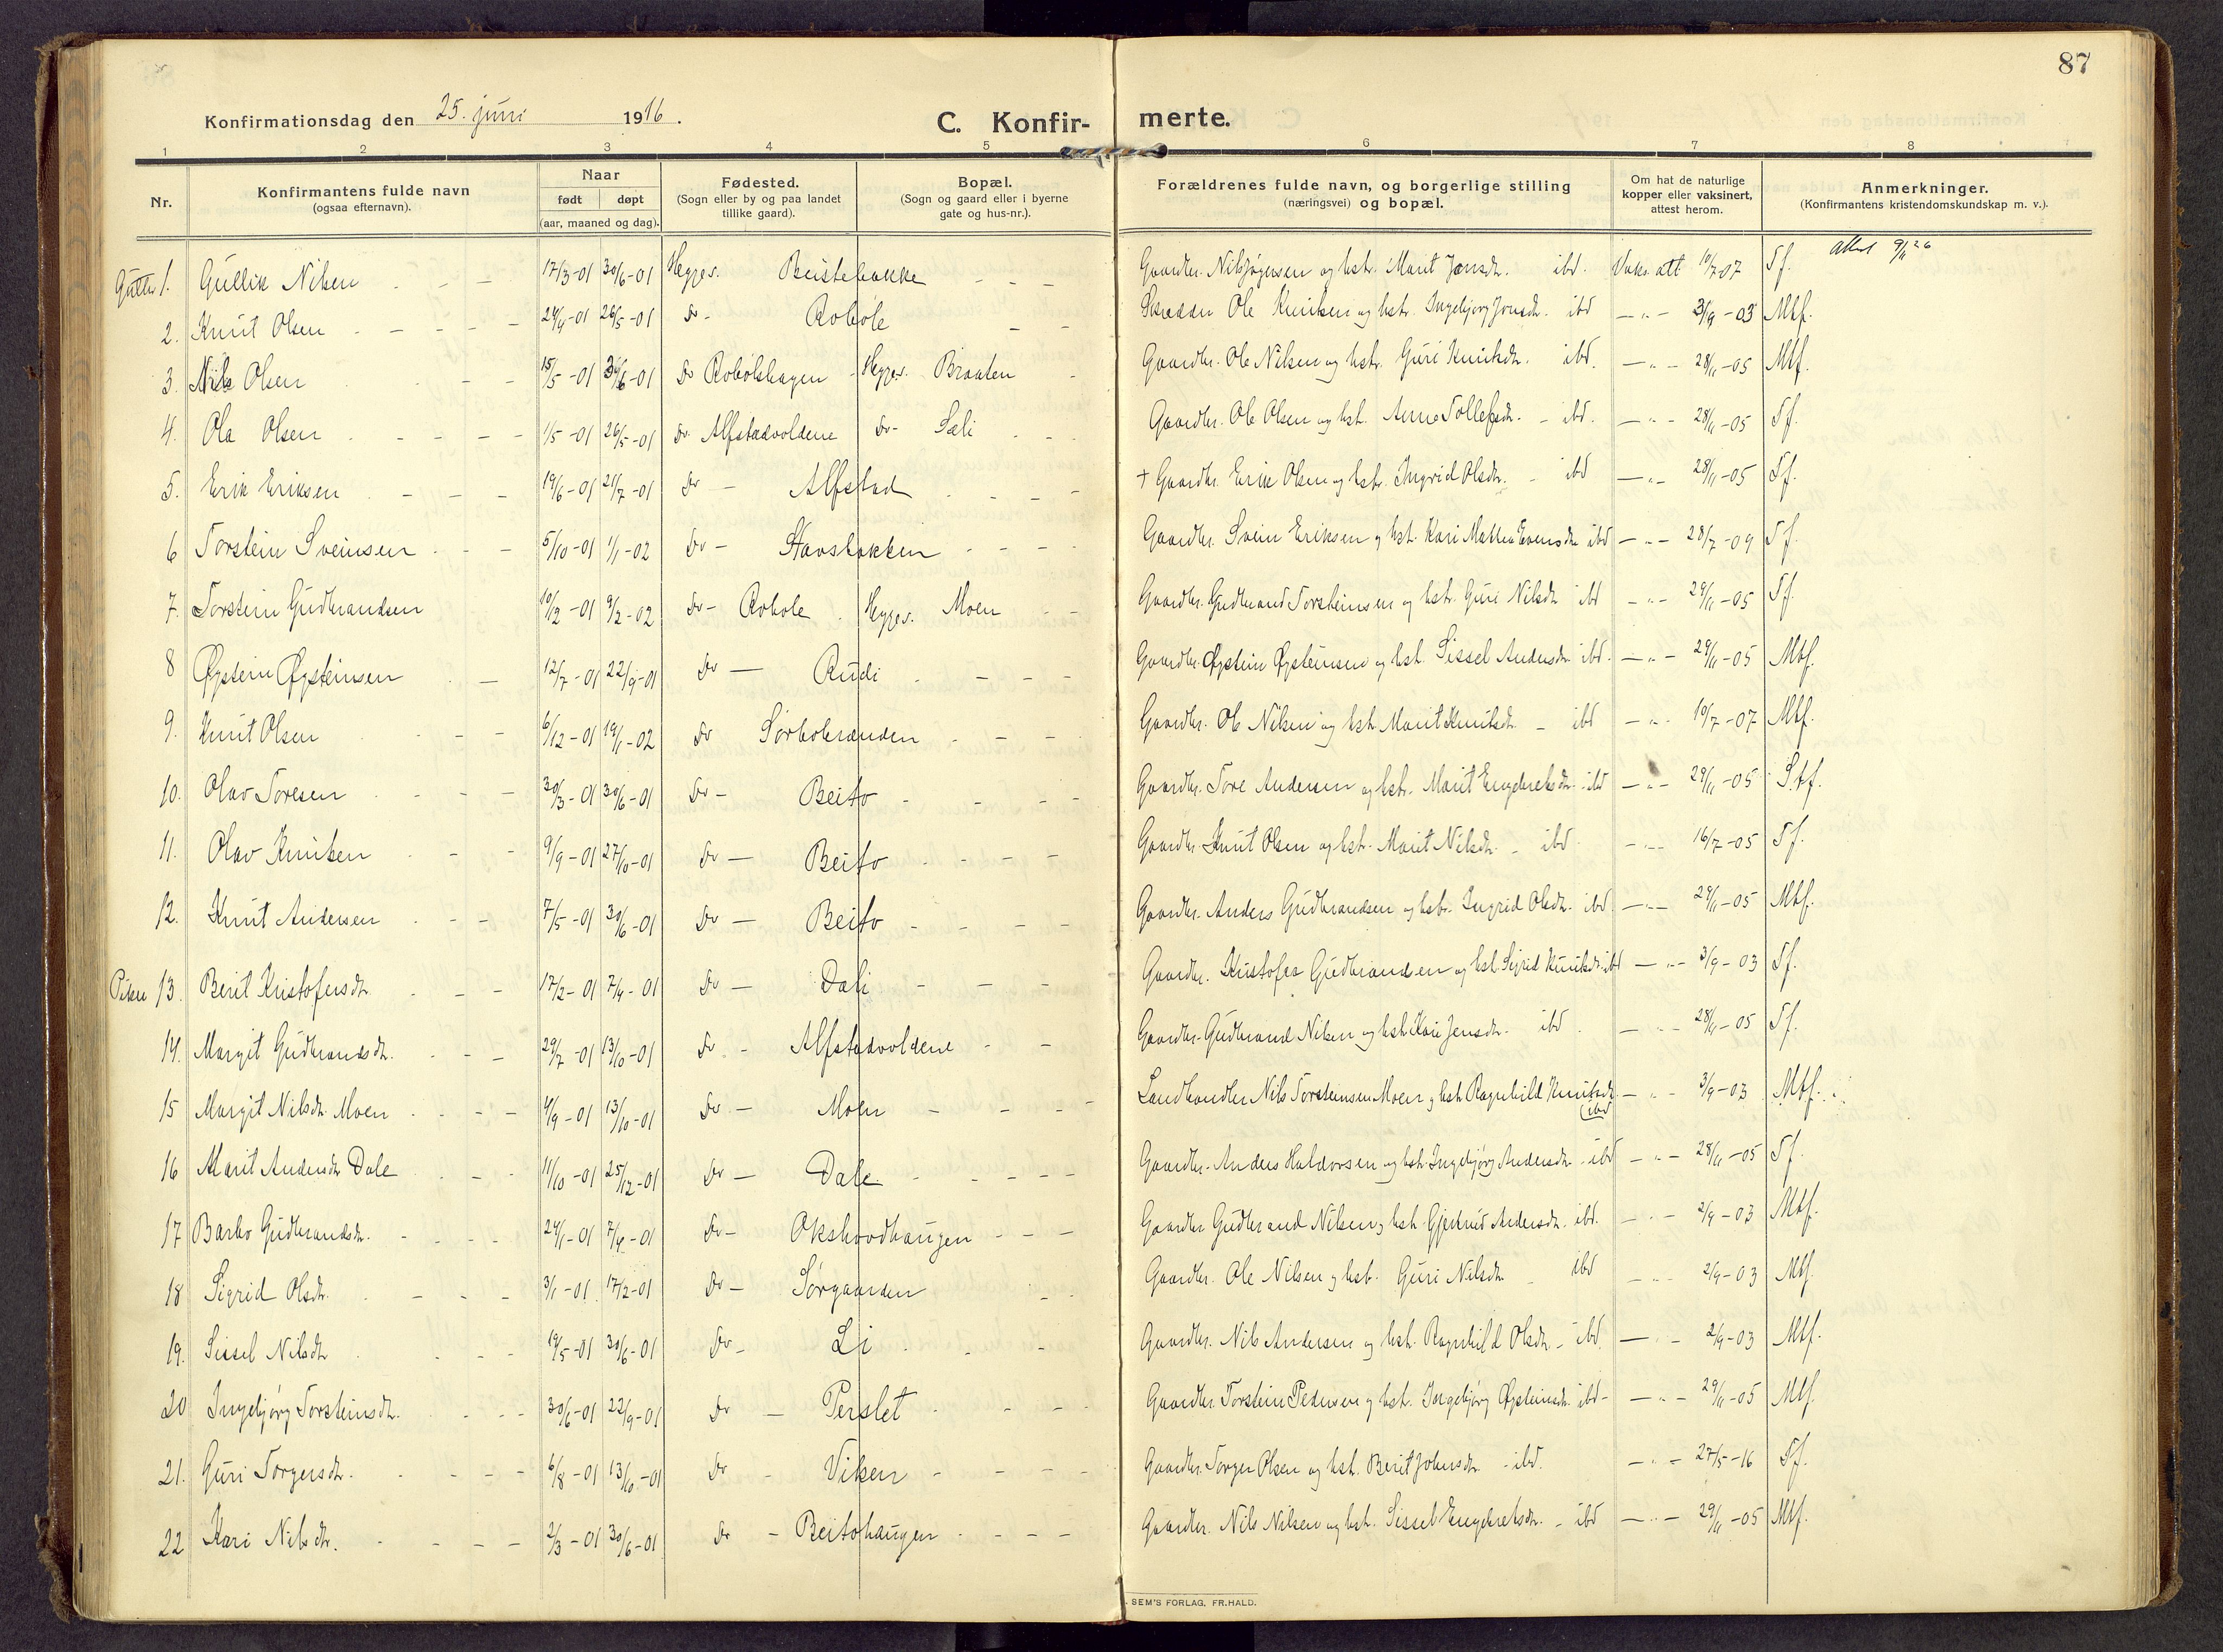 87
Konfirmationsdag den 25. juni 1916.
C. Konfirmerte.
1 2 3 4 5 6 7 8
Nr.
Konfirmantens fulde navn
(ogsaa efternavn).
Naar
født døpt
(aar, maaned og dag).
Fødested.
(Sogn eller by og paa landet
tillike gaard).
Bopæl.
(Sogn og gaard eller i byerne
gate og hus-nr.).
Forældrenes fulde navn, og borgerlige stilling
(næringsvei) og bopæl.
Om hat de naturlige
kopper eller vaksinert,
attest herom.
Anmerkninger.
(Konfirmantens kristendomskundskap m. v.).
Gutter 1. Gullik Nilsen 17/3-01 30/6-01 Hegges. Beistebakke Gaardbr. Nils Jøgensen og hstr. Marit Jonsdr. ibd. Vaks. att 10/7-07 Tf. attest 9/11 26
2. Knut Olsen 24/4-01 26/5-01 Do - Robøle Skrædder Ole Knutsen og hstr. Ingebjørg Jonsdr. ibd -"- 3/9-03 Mtf.
3. Nils Olsen 15/5-01 30/6-01 Do Robølshagen Hegges. Braaten Gaardbr. Ole Nilsen og hstr. Guri Knutsdr. ibd. -"- 28/11-05 Mtf.
4. Ola Olsen 1/5-01 26/5-01 Do Alfstadvoldene Do- Sæli Gaardbr. Ole Olsen og hst. Anne Tollefsdr. - ibd. -"- 28/11-05 Tf.
5. Erik Eriksen 19/6-01 21/7-01 Do - Alfstad + Gaardbr. Erik Olsen og hstr. Ingrid Olsdr. - ibd -"- 28/11-05 Tf.
6 Torstein Sveinsen 5/10-01 1/1-02 Do - Stavsbakken Gaardbr. Svein Eriksen og hst. Kari Mathea Evensdr ibd -"- 28/7-09 Tf.
7. Torstein Gudbrandsen 10/12-01 9/2-02 Do - Robøle Hegges. Moen Gaardbr. Gudbrand Torsteinsen og hstr. Guri Nilsdr ibd -"- 29/11-05 Tf.
8 Øystein Øysteinsen 12/7-01 22/9-01 Do - Rudi Gaardbr. Øystein Øysteinsen og hst. Sissel Andersdr ibd. -"- 29/11-05 Mtf.
9. Knut Olsen 6/12-01 19/1-02 Do Sørbøbrænden Gaardbr. Ole Nilsen og hst. Marit Knutsdr. - ibd -"- 10/7-07 Mtf.
10. Olav Toresen 30/3-01 30/6-01 Do - Beito Gaardbr. Tore Andersen og hstr. Marit Engebretsdr. ibd -"- 29/11-05 S.tf.
11. Olav Knutsen 9/9-01 27/10-01 Do - Beito Gaardbr Knut Olsen og hstr. Marit Nilsdr. - ibd -"- 16/7-05 Tf.
12. Knut Andersen 7/5-01 30/6-01 Do - Beito Gaardbr. Anders Gudbrandsen og hstr. Ingrid Olsdr. ibd. -"- 29/11-05 Mtf.
Piker 13. Berit Kristofersdr. 17/2-01 7/4-01 Do - Dali Gaardbr. Kristofer Gudbrandsen og hst. Sigrid Knutsdr. ibd -"- 3/9-03 Tf.
14. Margit Gudbrandsdr. 29/7-01 13/10-01 Do - Alfstadvoldene Gaardbr. Gudbrand Nilsen og hst. Kari Jensdr. ibd. -"- 28/11-05 Tf.
15 Margit Nilsdr. Moen 4/9-01 13/10-01 Do - Moen Landhandler Nils Torsteinsen Moen og hst. Ragnhild Knutsdr (ibd -"- 3/9-03 Mtf.
16 Marit Andersdr. Dale 11/10-01 25/12-01 Do - Dale Gaardbr. Anders Haldorsen og hst. Ingebjørg Andersdr. ibd -"- 28/11-05 Tf.
17 Barbo Gudbrandsdr. 24/1-01 7/4-01 Do - Okshovdhaugen Gaardbr Gudbrand Nilsen og hst. Gjertrud Andersdr. ibd. -"- 2/9-03 Mtf.
18 Sigrid Olsdr. 3/1-01 17/2-01 Do - Sørgaarden Gaardbr. Ole Nilsen og hst. Guri Nilsdr. ibd -"- 2/9-03 Mtf.
19. Sissel Nilsdr 19/5-01 30/6-01 Do - Li Gaardbr. Nils Andersen og hst. Ragnhild Olsdr. - ibd. -"- 2/9-03 Mtf.
20 Ingebjørg Torsteinsdr. 30/6-01 22/9-01 Do - Perslet Gaardbr. Torstein Pedersen og hst. Ingebjørg Øysteinsdr. ibd- -"- 29/11-05 Mtf.
21. Guri Torgersdr. 6/8-01 13/10-01 Do - Viken Gaardbr. Torger Olsen og hst. Berit Johnsdr - ibd. -"- 27/5-16 Tf.
22 Kari Nilsdr. 2/3-01 30/6-01 Do - Beitohaugen Gaardbr. Nils Nilsen og hst. Sissel Engebretsdr. - ibd -"- 29/11-05 Mtf.
SEM'S FORLAG, FR.HALD.